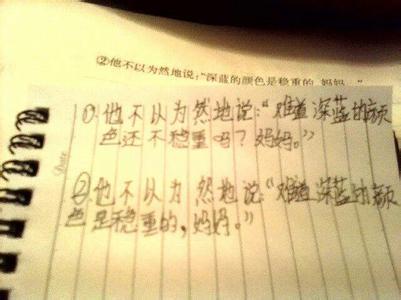 ②他不以为然地说:“深蓝的颜色是稳重的,妈妈。”
①.他不以为然地说:“难道深蓝的颜
色还不稳重吗?妈妈。”
②.他不以为然地说:“难道深蓝的颜
色是稳重的,妈妈。”
Date